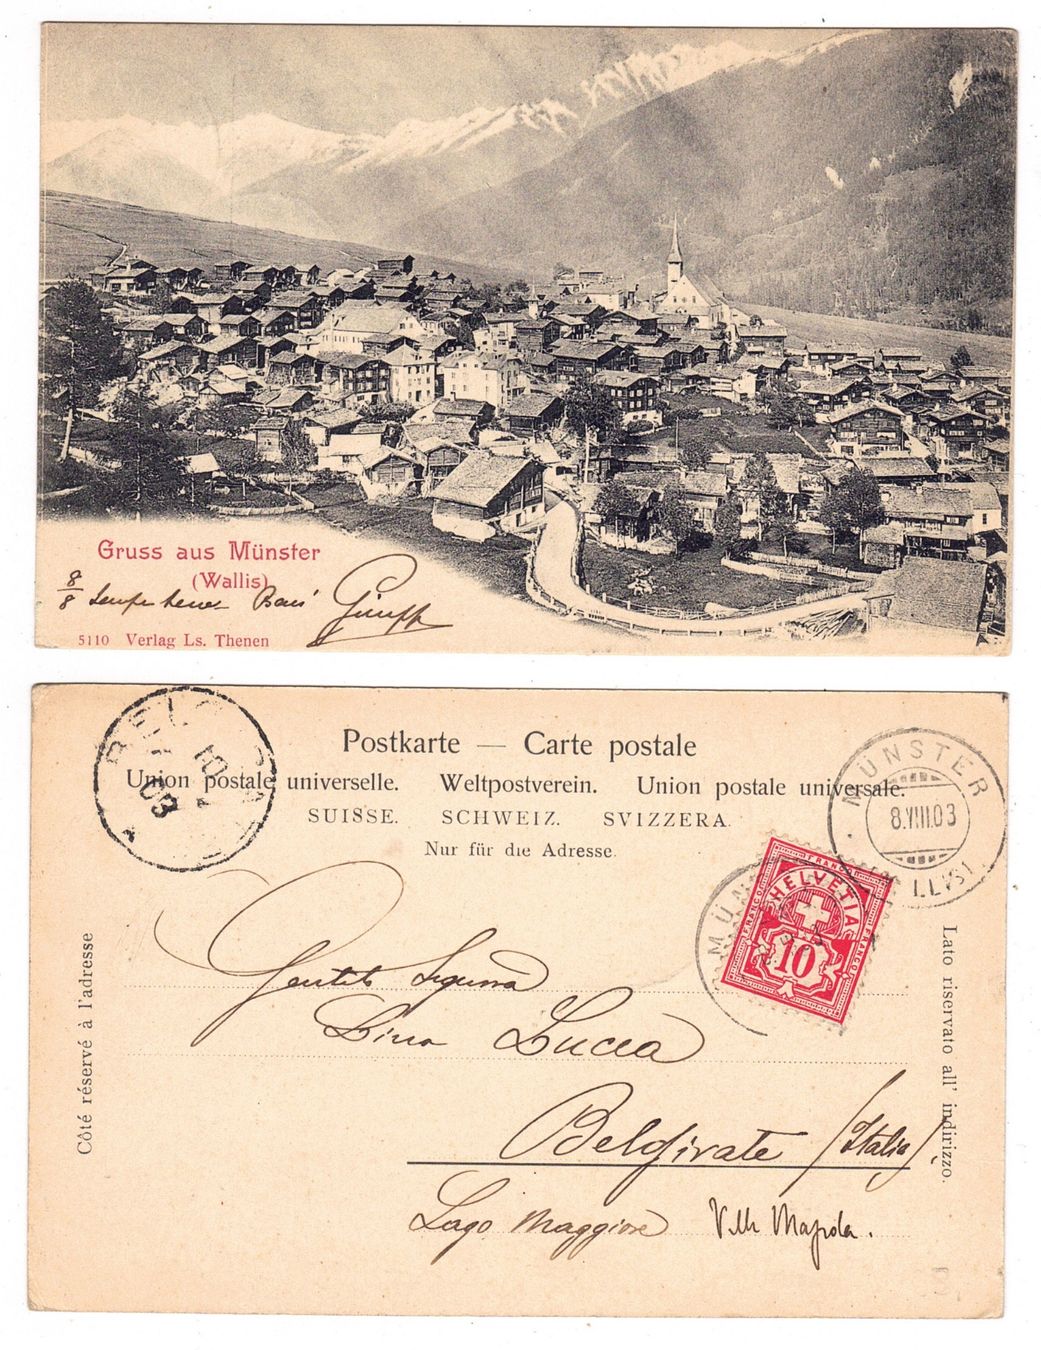 Gruss aus Münster
(Wallis)
8/8
5110 Verlag Ls. Thenen
Postkarte — Carte postale
Union postale universelle. Weltpostverein. Union postale universale.
SUISSE. SCHWEIZ. SVIZZERA.
Nur für die Adresse.
MÜNSTER
8.VIII.03
FRANCO
HELVETIA
10
Côté réservé à l'adresse
Lato riservato all' indirizzo.
Lina Lucca
Belgirate (Italia)
Lago Maggiore